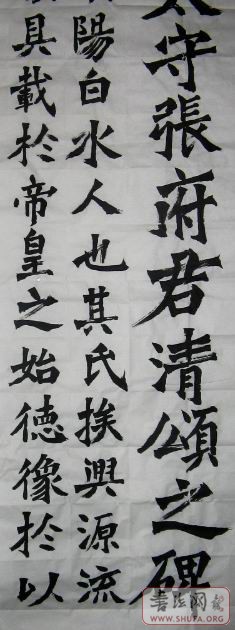 太守張府君清頌之碑
陽白水人也其氏挨興源流
具載於帝皇之始德像於以
書法网
WWW.SHUFA.ORG